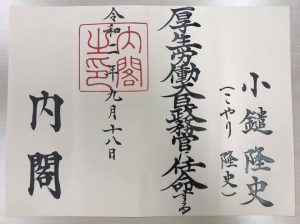 小鑓隆史
(こやり 隆史)
厚生労働大臣政務官に任命する
令和二年九月十八日
内閣
内閣之印